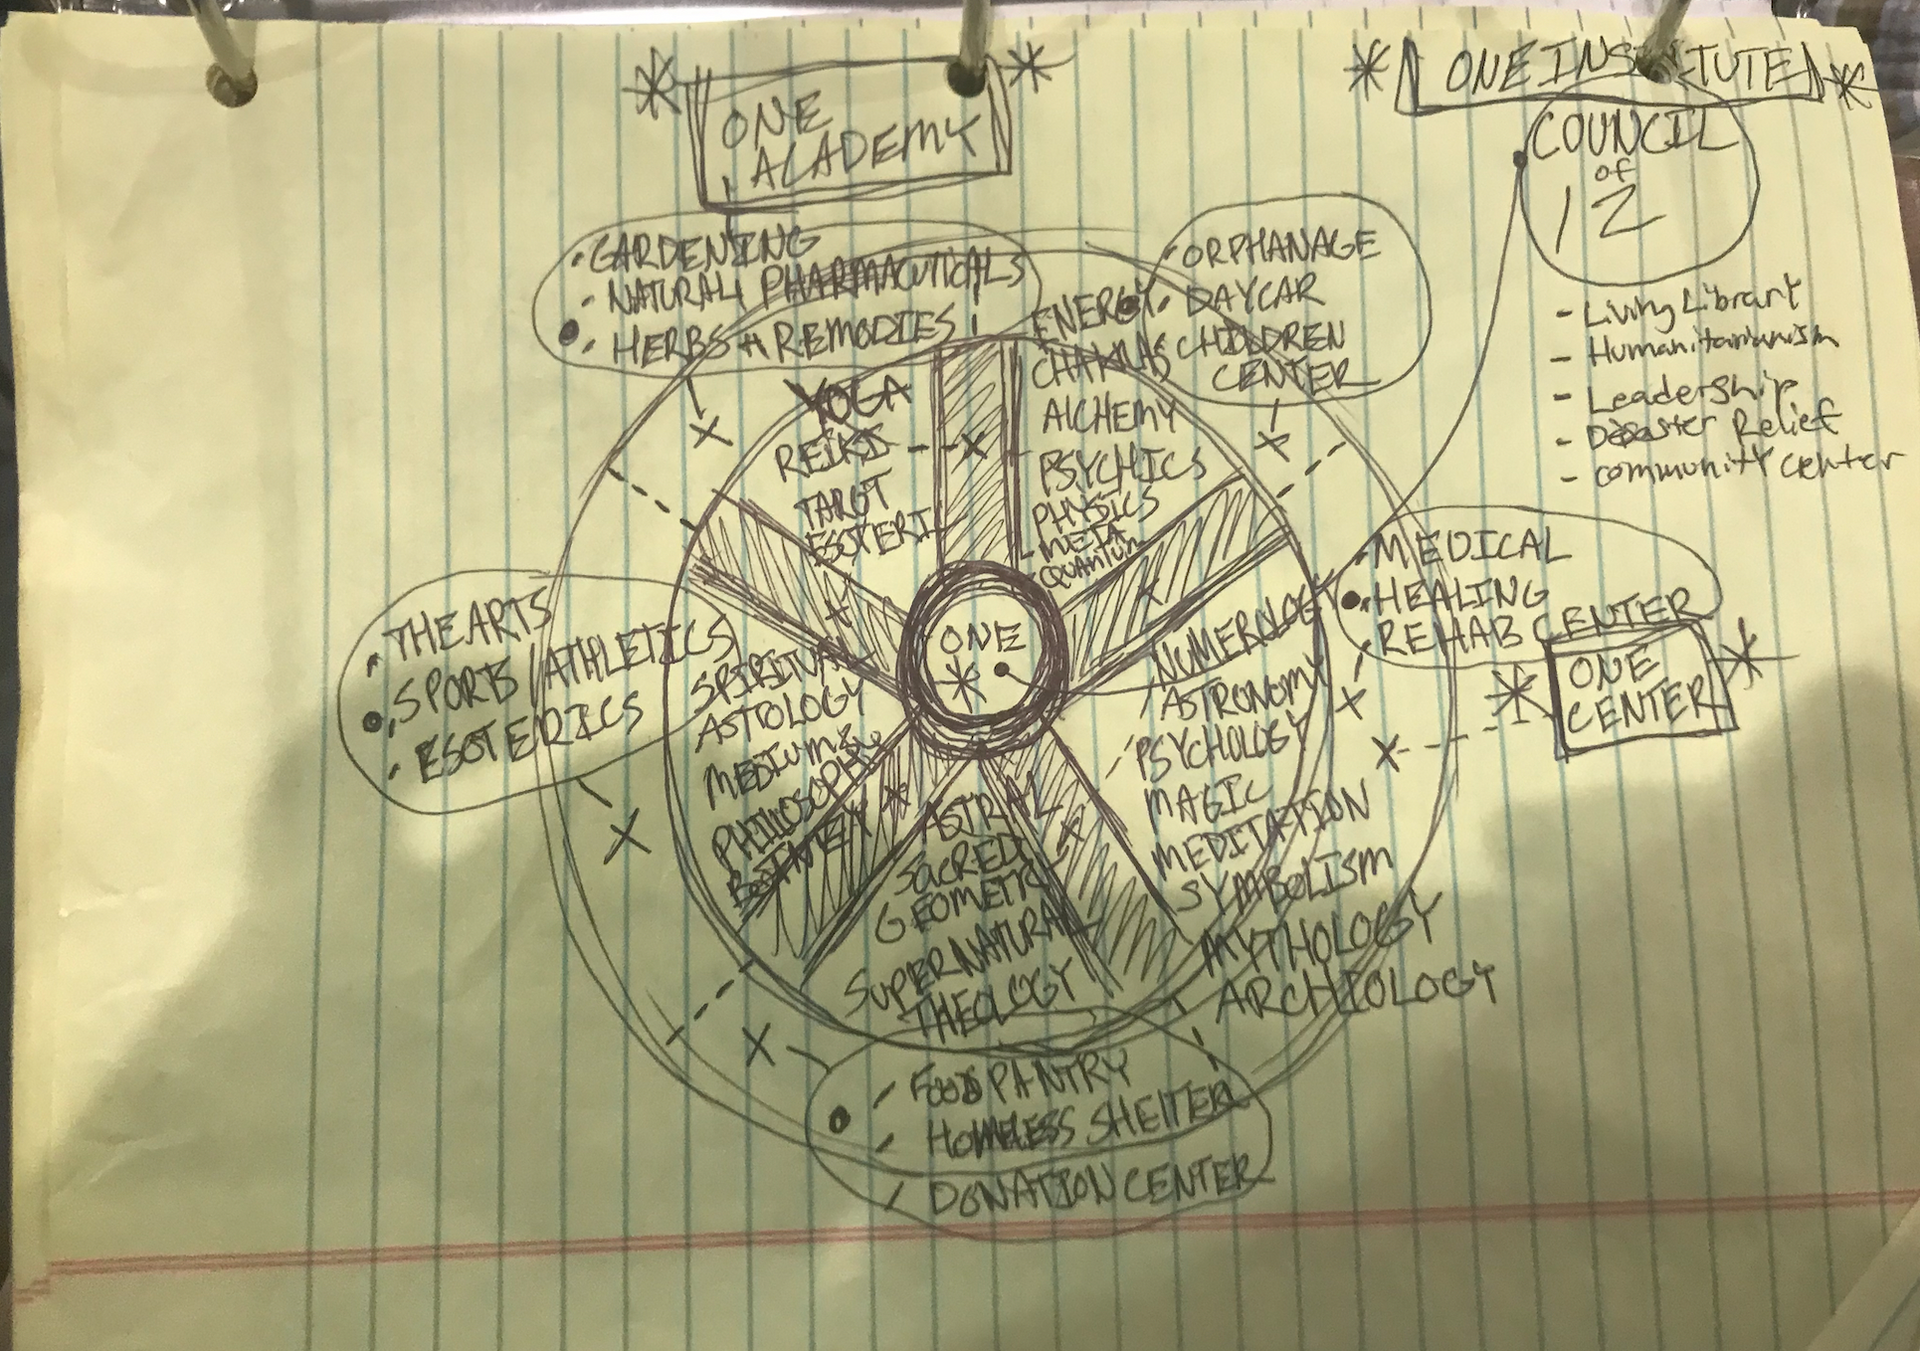 ONE
ACADEMY
ONE INSTITUTE
COUNCIL
of
12
- Living Library
- Humanitarianism
- Leadership
- Disaster Relief
- community center
• GARDENING
- NATURAL PHARMACUTICALS
• HERBS + REMODIES
• ORPHANAGE
• DAYCAR
CHILDREN
CENTER
ENERGY
CHAKRAS
ALCHEMY
PSYCHICS
PHYSICS
- META
- QUANTUM
YOGA
REIKI
TAROT
ESOTERI
- MEDICAL
• HEALING
- REHAB CENTER
ONE
CENTER
ONE
NUMEROLOGY
ASTRONOMY
PSYCHOLOGY
MAGIC
MEDITATION
SYMBOLISM
MYTHOLOGY
ARCHIOLOGY
• THE ARTS
• SPORTS / ATHLETICS
• ESOTERICS
SPIRITUAL
ASTOLOGY
MEDIUMS
PHILOSOPHY
ASTRAL
SACRED
GEOMETIC
SUPERNATURAL
THEOLOGY
- FOOD PANTRY
- HOMELESS SHELTER
- DONATION CENTER